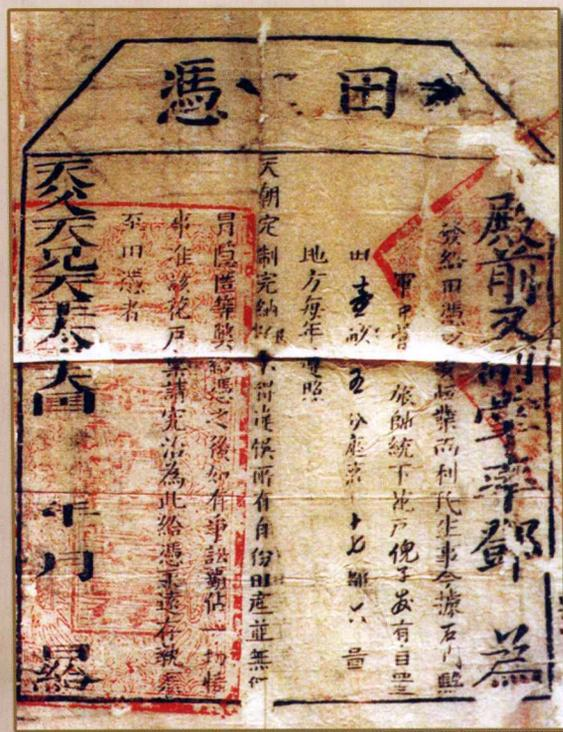 田憑
殿前又副掌率鄧 為
發給田憑以安恒業而利民生事今據石門縣
軍中營 旅帥統下花戶倪 有自置
田壹畝五分 十七都六啚
地方每年遵照
天朝定制完納 不得遲悮所有自份田產並無
冒隱匿等弊給憑之後如有爭訟霸佔一切情
事准該花戶稟請究治為此給憑永遠存執
至田憑者
天父天兄天王太平天囯 年 月 日給